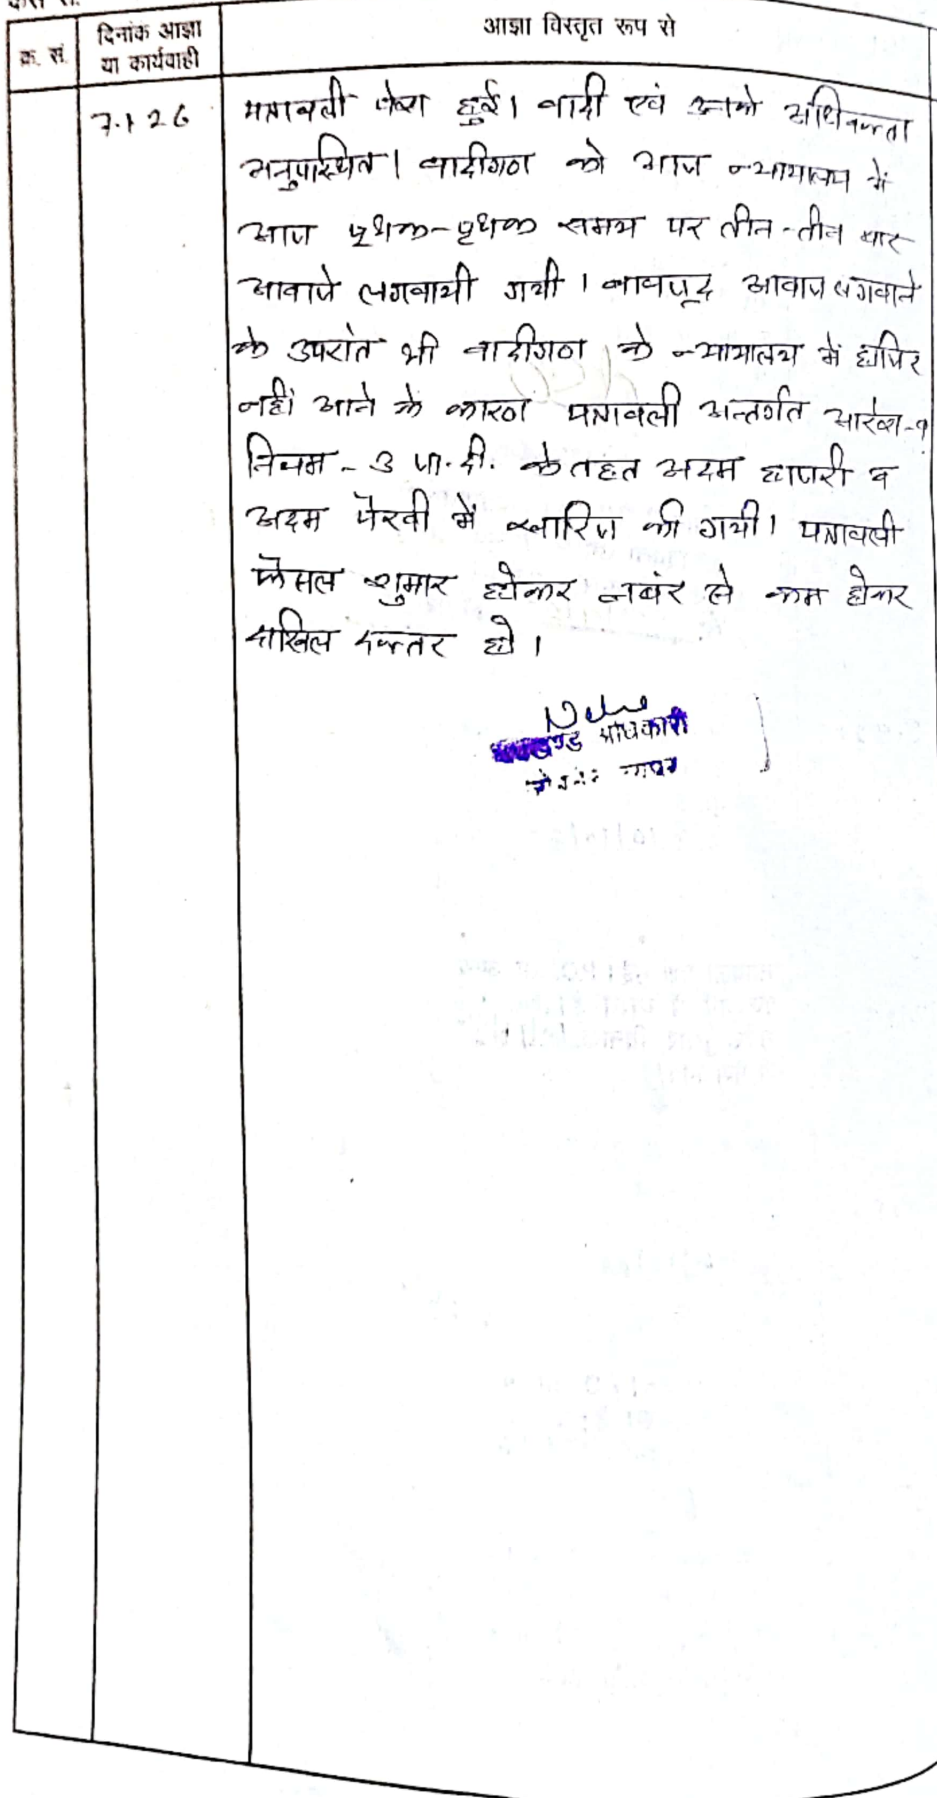 क्र. सं.
दिनांक आज्ञा
या कार्यवाही
आज्ञा विस्तृत रूप से
7.1.26
पत्रावली पेश हुई। वादी एवं उनके अधिवक्ता
अनुपस्थित। वादीगण को आज न्यायालय में
आज पृथक-पृथक समय पर तीन-तीन बार
आवाजे लगवायी गयी। बावजूद आवाज लगवाने
के उपरांत भी वादीगण के न्यायालय में हाजिर
नहीं आने के कारण पत्रावली अन्तर्गत आदेश-९
नियम-3 जा.दी. के तहत अदम हाजरी व
अदम पैरवी में खारिज की गयी। पत्रावली
फैसल शुमार होकर नबंर से कम होकर
दाखिल दफ्तर हो।
अधिकारी